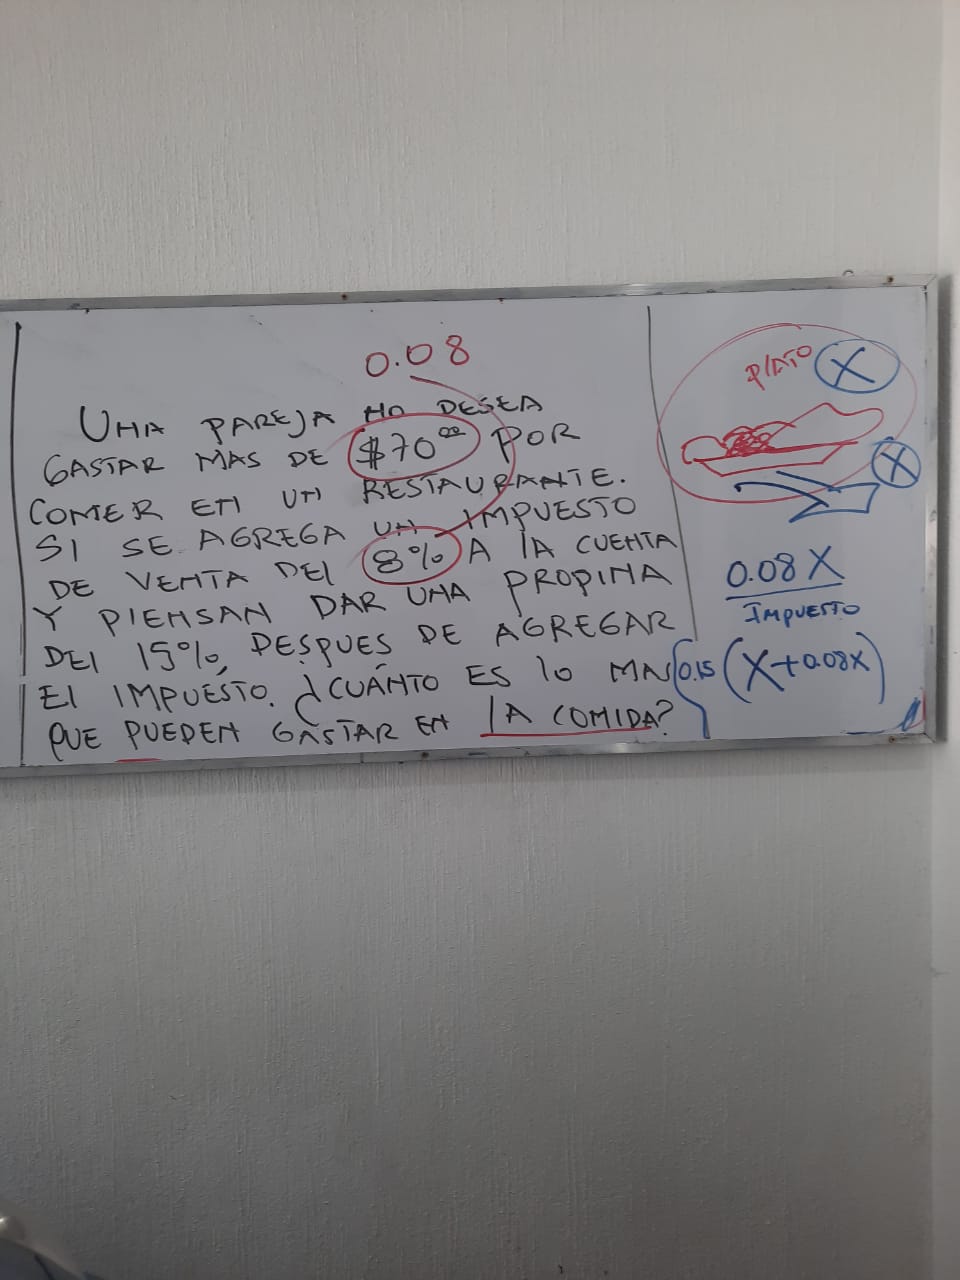 0.08
UNA PAREJA NO DESEA
GASTAR MAS DE $70.00 POR
COMER EN UN RESTAURANTE.
SI SE AGREGA UN IMPUESTO
DE VENTA DEL 8% A LA CUENTA
Y PIENSAN DAR UNA PROPINA
DEL 15%, DESPUES DE AGREGAR
EL IMPUESTO. ¿CUÁNTO ES LO MAS
QUE PUEDEN GASTAR EN LA COMIDA?
PLATO X
X
0.08X
IMPUESTO
0.15 (X+0.08X)